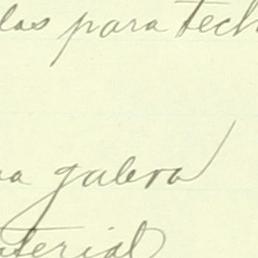 las para tech
na galera
aterial